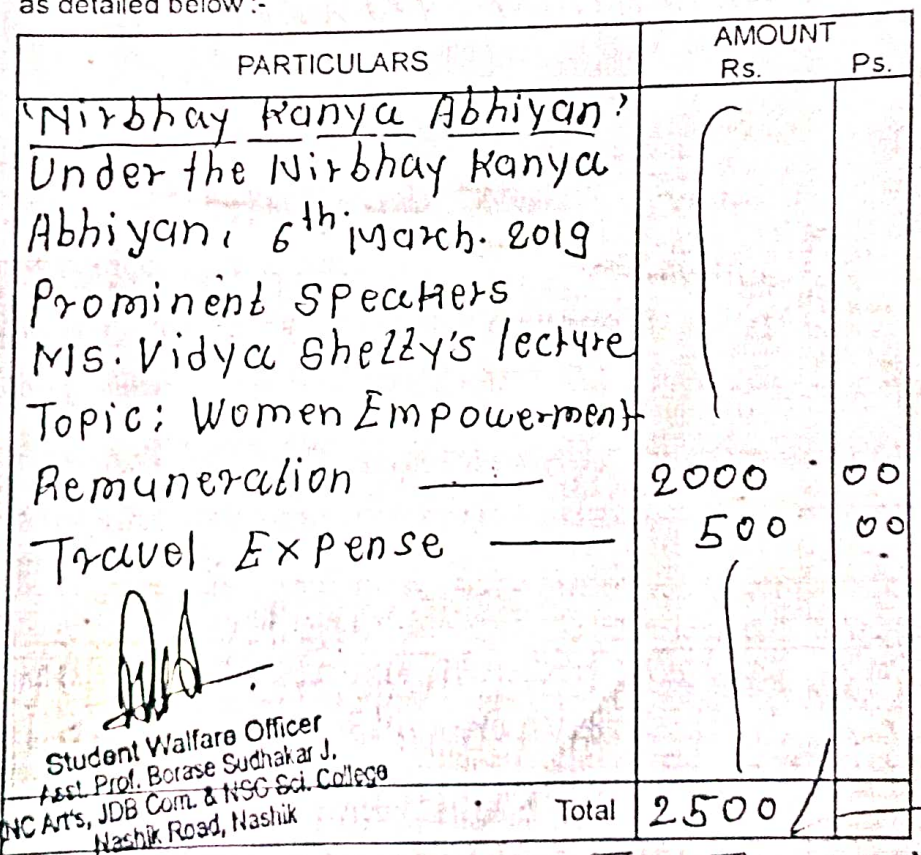 as detailed below :-
PARTICULARS AMOUNT
Rs. Ps.
'Nirbhay Kanya Abhiyan'
Under the Nirbhay Kanya
Abhiyan, 6th March. 2019
Prominent Speakers
Ms. Vidya Shetty's lecture
Topic: Women Empowerment
Remuneration — 2000 00
Travel Expense — 500 00
Student Walfare Officer
Asst. Prof. Borase Sudhakar J.
NC Art's, JDB Com. & NSC Sci. College
Nashik Road, Nashik
Total 2500/-